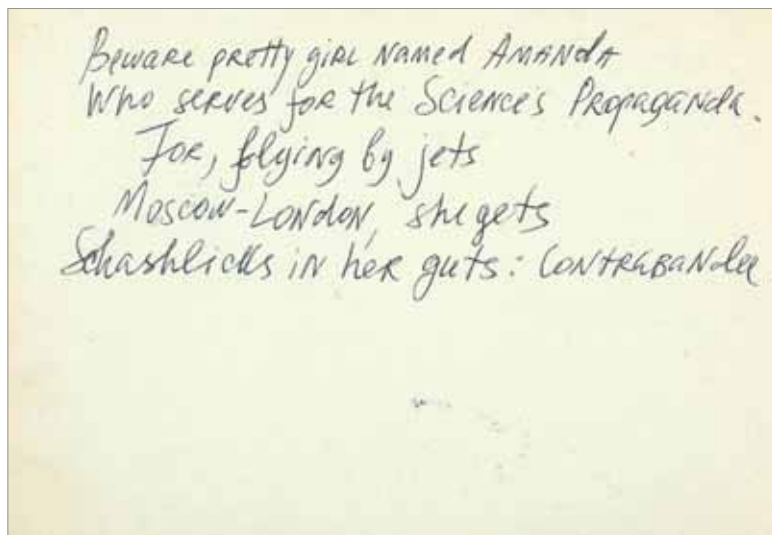 Beware pretty girl named Amanda
Who serves for the Science's Propaganda.
For, flying by jets
Moscow-London, she gets
Schashlicks in her guts: contrabanda